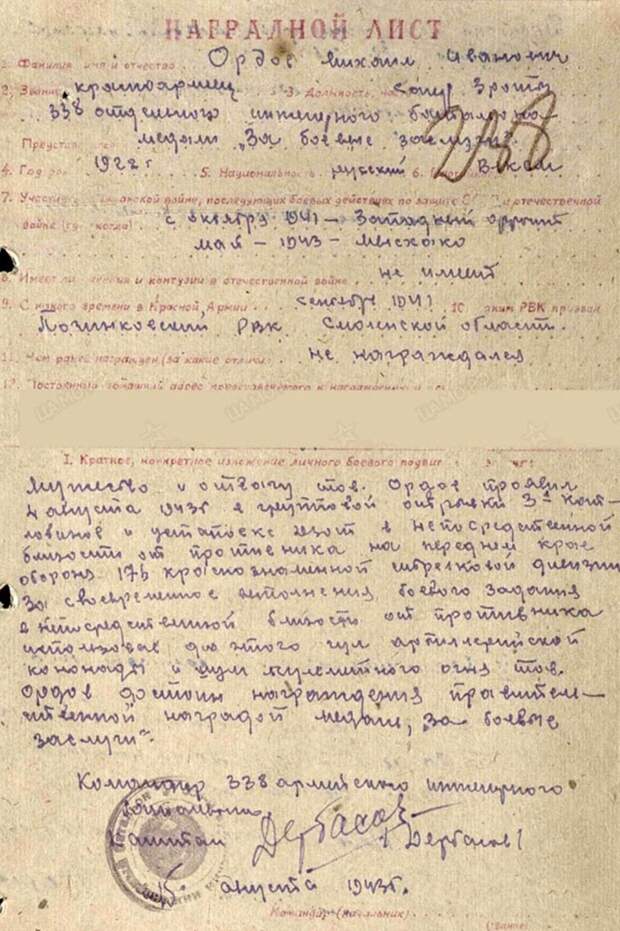 НАГРАДНОЙ ЛИСТ
1. Фамилия имя и отчество Ордов Михаил Иванович
2. Звание красноармеец 3. Должность, сапер 3 роты
338 отдельного инженерного баталиона
Предст медали „За боевые заслуги" 208
4. Год 1922 г 5. Национальность русский 6. ВЛКСМ
7. Участие гражданской войне, последующих боевых действиях по защите СССР и отечественной
войне (где когда) с октября 1941 – Западный фронт
май – 1943 –
8. Имеет ли и контузии в отечественной войне не имеет
9. С какого времени в Красной Армии сентябрь 1941 10. Каким РВК призван
Починковский РВК Смоленской области
11. Чем ранее награжден (за какие отличия) не награждался
12. Постоянный домашний адрес
I. Краткое, конкретное изложение личного боевого подвига
Мужество и отвагу тов. Ордов проявил
4 августа 1943г в групповой отрывки 3х кот-
лованов и установке дзот в непосредственной
близости от противника на переднем крае
обороны 175 краснознаменной стрелковой дивизии
За своевременное выполнения боевого задания
в непосредственной близости от противника
использовав для этого гул артиллерийской
кононады и шум пулеметного огня тов.
Ордов достоин награждения правитель-
ственной наградой медаль „За боевые
заслуги".
Командир 338 армейского инженерного
баталиона
капитан Дербасов (Дербасов)
15 августа 1943г.
Командир (начальник)
(звание)